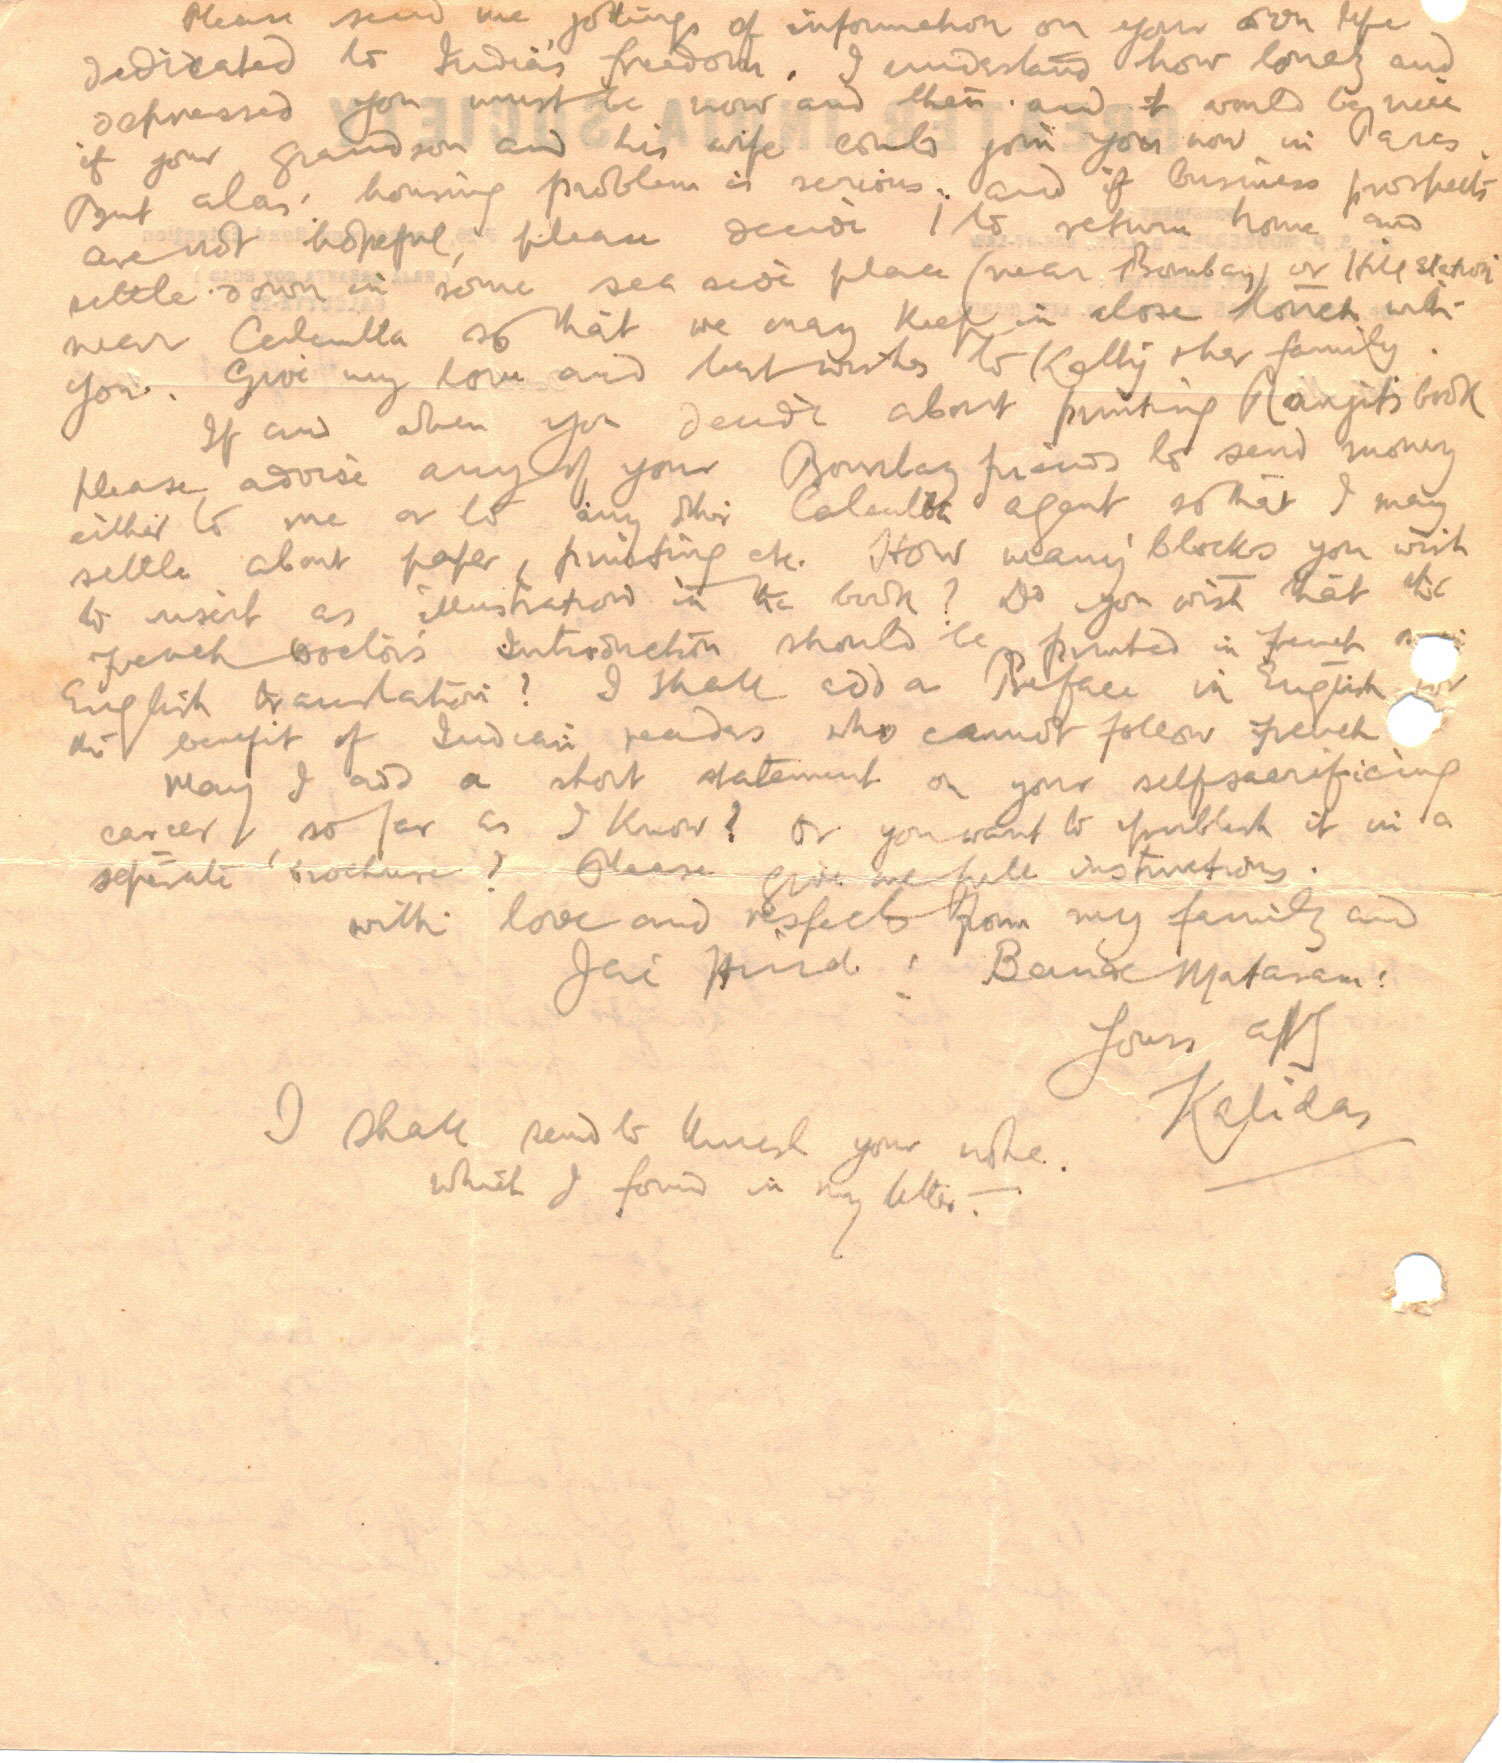 Please send me jottings of information on your own life
dedicated to India's freedom. I understand how lonely and
depressed you must be now and then and it would be nice
if your grandson and his wife could join you now in Paris.
But alas! housing problem is serious. and if business prospects
are not hopeful, please decide to return home and
settle down in some sea side place (near Bombay) or Hill station
near Calcutta so that we may keep in close touch with
you. Give my love and best wishes to Kelly & her family.
If and when you decide about printing Ranjit's book
please advise any of your Bombay friends to send money
either to me or to any other Calcutta agent so that I may
settle about paper, printing etc. How many blocks you wish
to insert as illustrations in the book? Do you wish that the
French Doctor's Introduction should be printed in French
English translation? I shall add a Preface in English for
the benefit of Indian readers who cannot follow French
May I add a short statement on your selfsacrificing
career, so far as I know? Or you want to publish it in a
separate brochure? Please give me full instructions.
with love and respects from my family and
Jai Hind! Bande Mataram!
Yours affly
Kalidas
I shall send to Umesh your note.
which I found in my letter.
GREATER INDIA SOCIETY